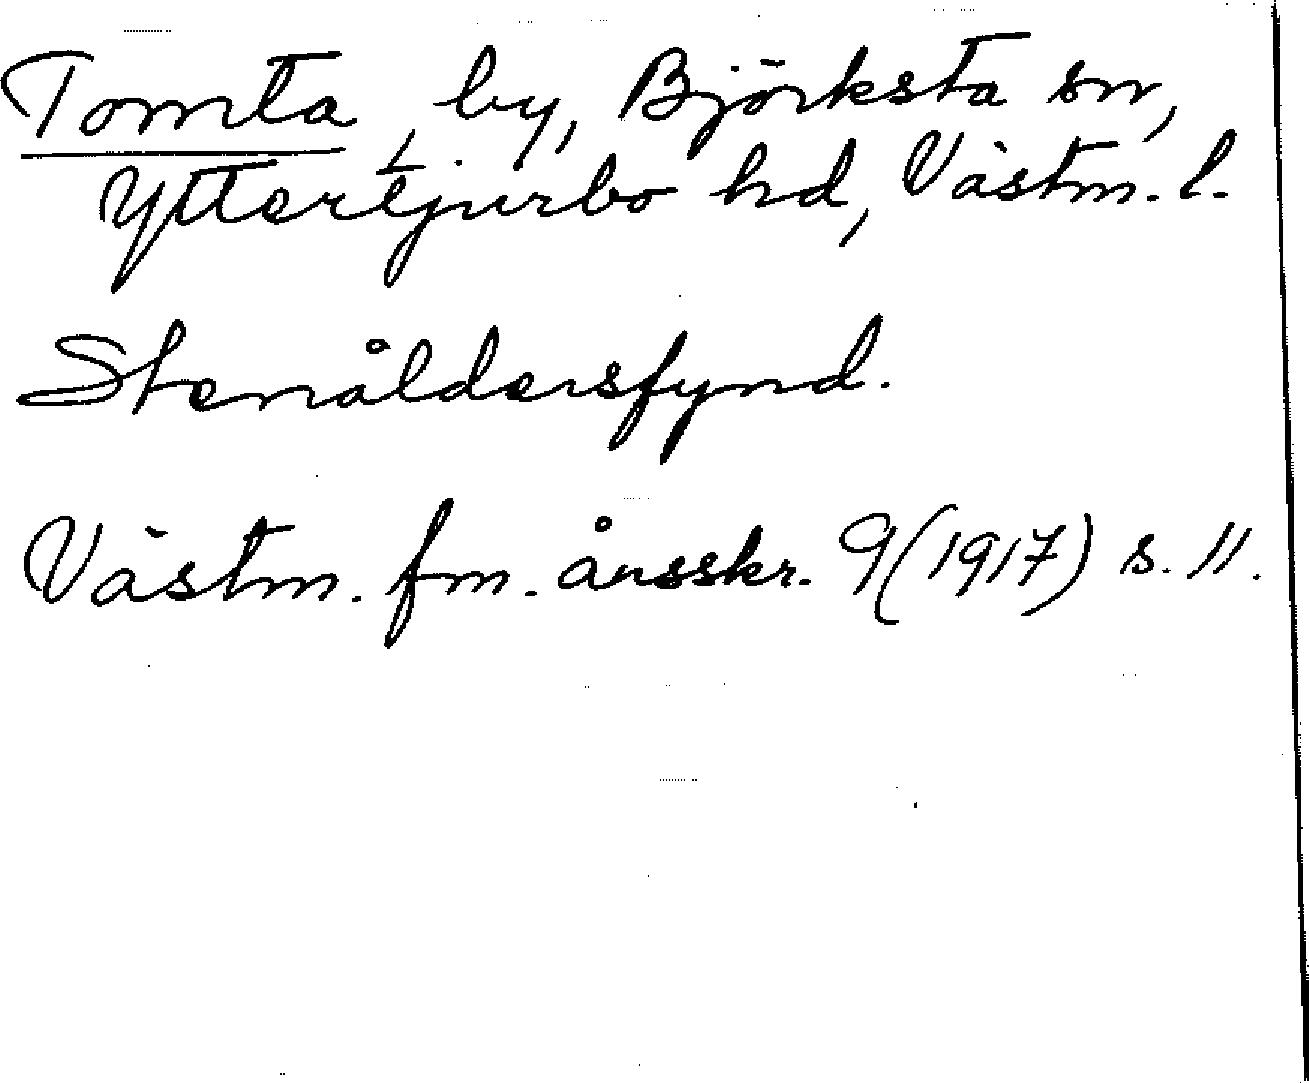 Tomta, by, Björksta sn,
Yttertjurbo hd, Västm. l.
Stenåldersfynd.
Västm. fm. årsskr. 9 (1917) s. 11.